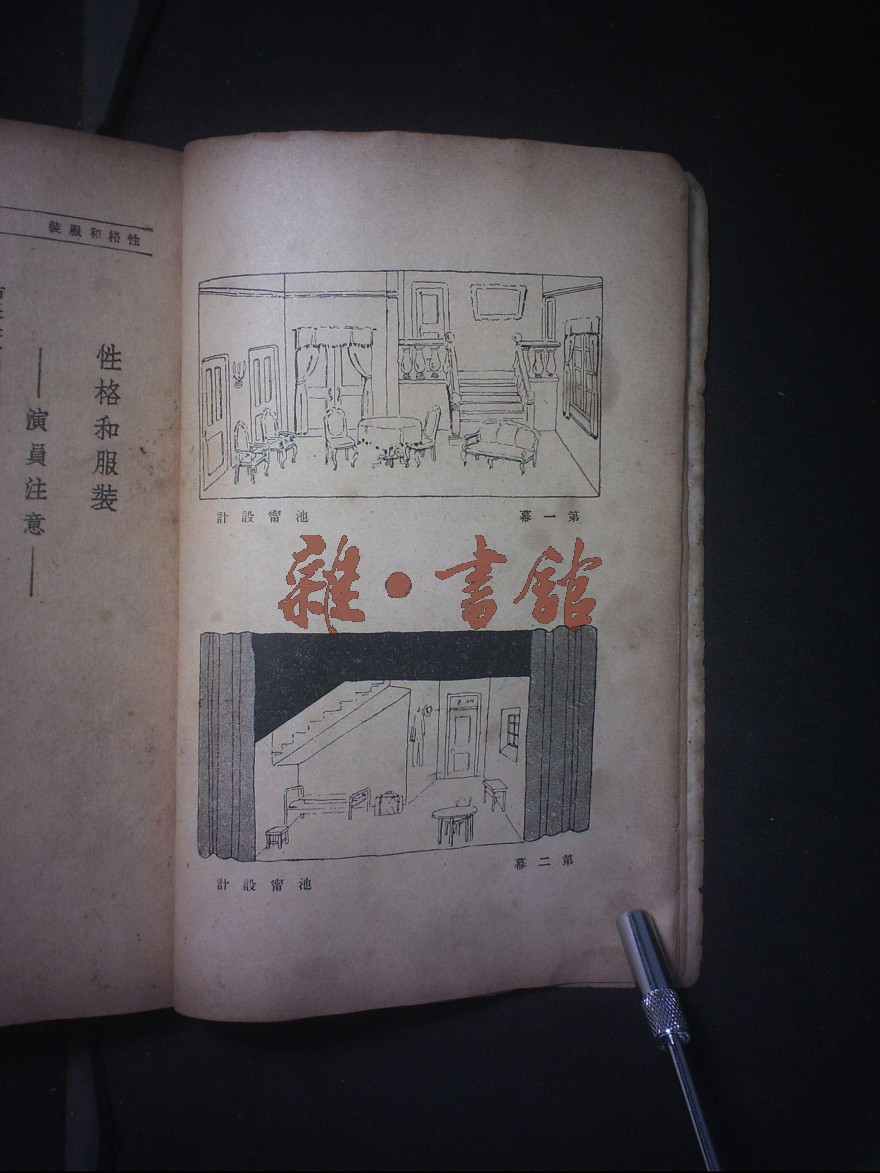 性格和服裝
性格和服裝
——演員注意——
第一幕
池甯設計
雜·書館
第二幕
池甯設計